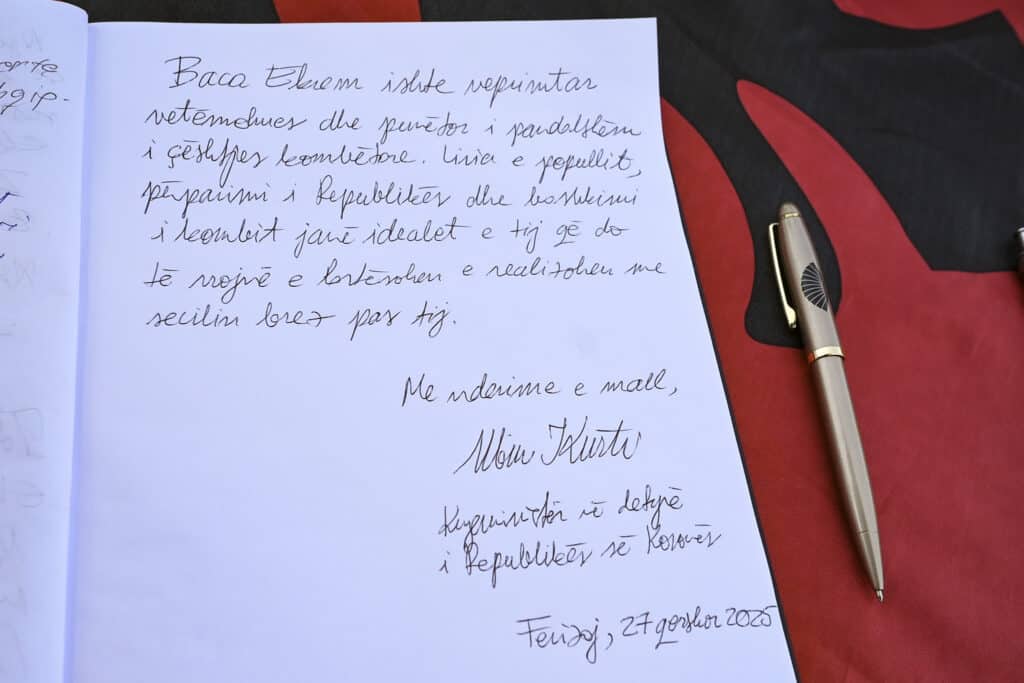 orte
gip-
Baca Ekrem ishte veprimtar
vetëmohues dhe punëtor i pandalshëm
i çështjes kombëtare. Liria e popullit,
përparimi i Republikës dhe bashkimi
i kombit janë idealet e tij që do
të rrojnë e lartësohen e realizohen me
secilin brez pas tij.
Me nderime e mall,
Albin Kurti
Kryeministër në detyrë
i Republikës së Kosovës
Ferizaj, 27 qershor 2025